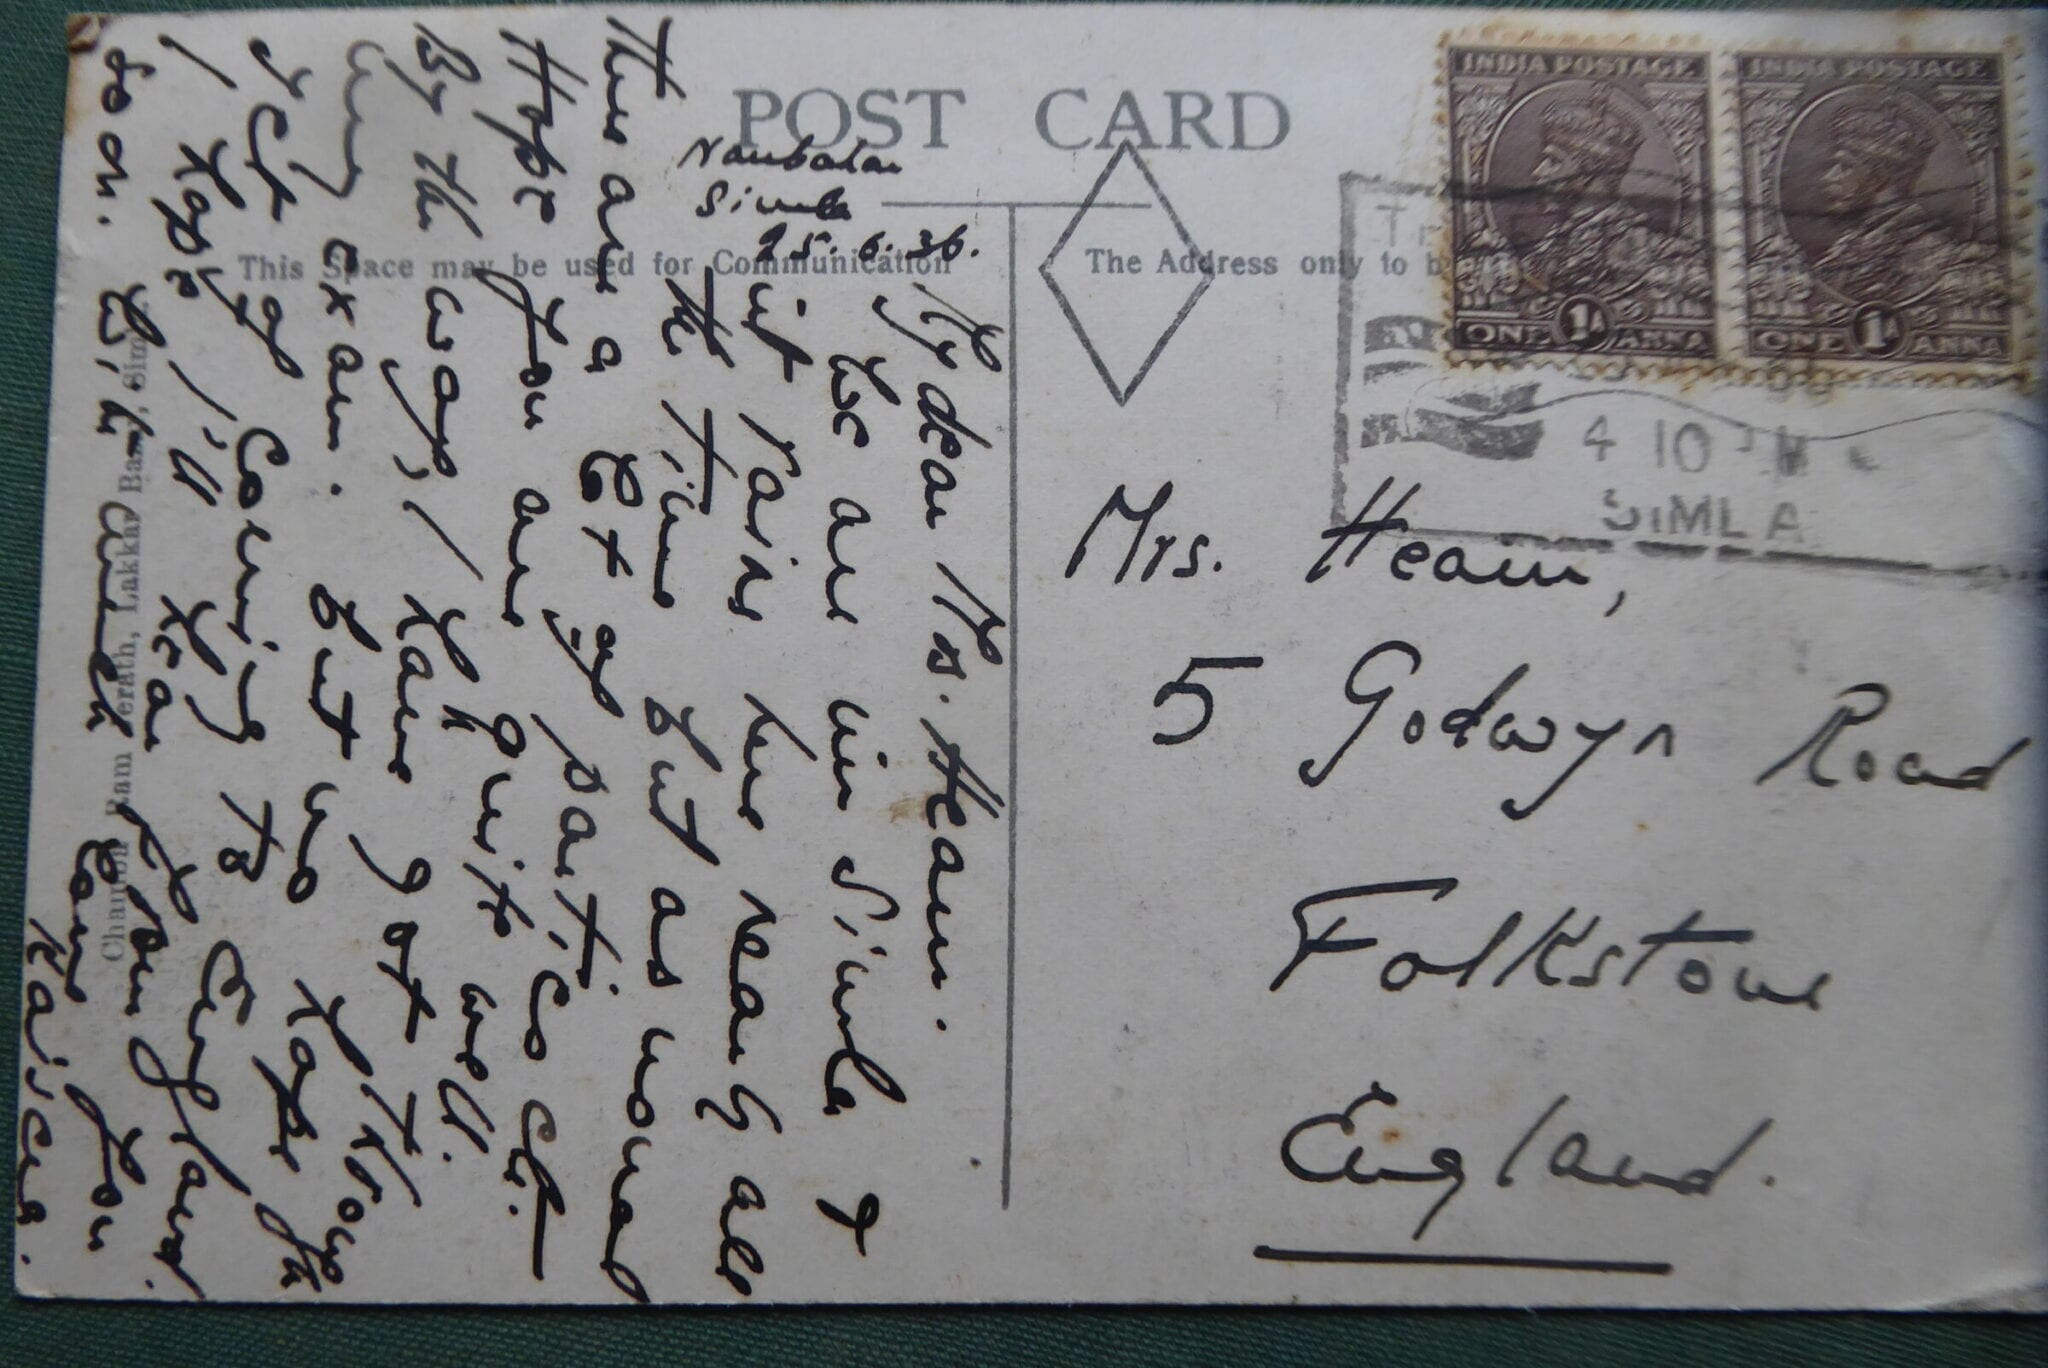 POST CARD
This Space may be used for Communication
The Address only to b
INDIA POSTAGE
ONE 1A ANNA
INDIA POSTAGE
ONE 1A ANNA
4 10
SIMLA
Simla
25.6.36.
My dear Mrs. Heam.
We are in Simla &
it rains here nearly all
the time but as usual
there are a lot of parties etc.
Hope you are quite well.
By the way, I have got through
my exam. but no hope
yet of coming to England.
I hope I'll hear from you
soon. With much love
Mrs. Heam,
5 Godwyn Road
Folkstone
England.
Ram Lakkar Bazar, Siml